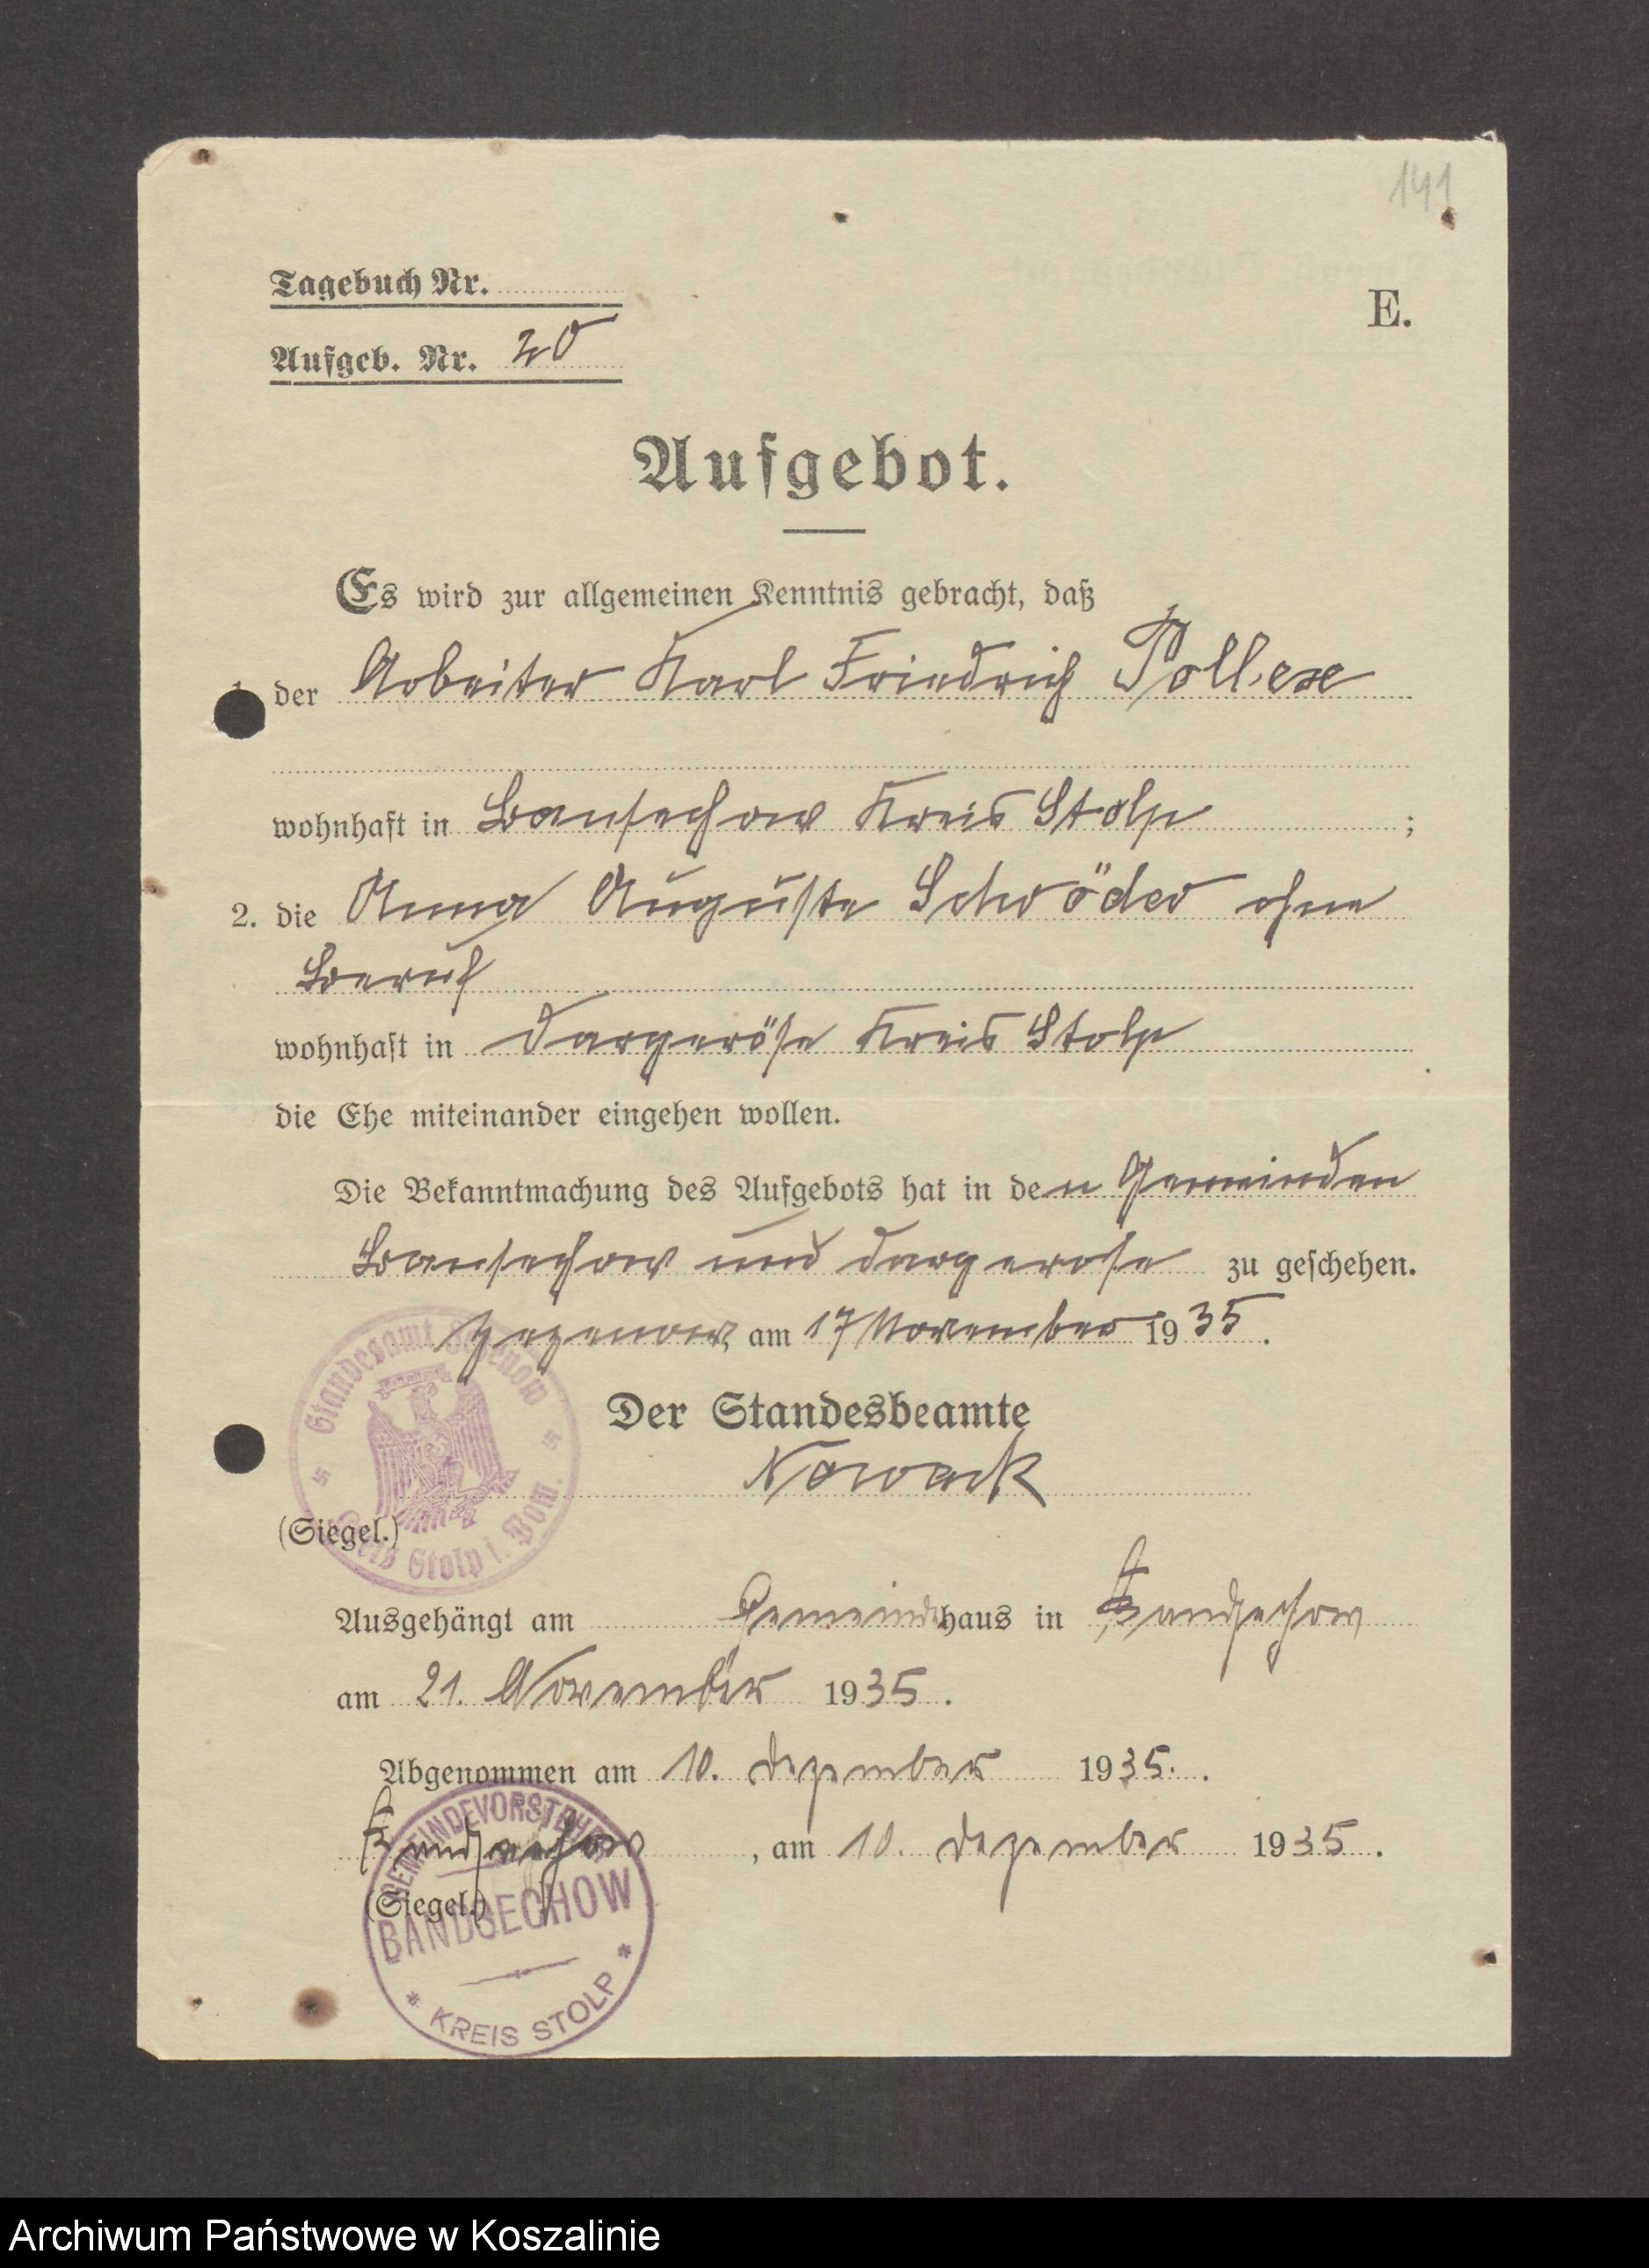 141
Tagebuch Nr.
E.
Aufgeb. Nr. 20
Aufgebot.
Es wird zur allgemeinen Kenntnis gebracht, daß
der Arbeiter Karl Friedrich
wohnhaft in Bansechow Kreis Stolp ;
2. die Anna Auguste Schröder ohne
Beruf
wohnhaft in Dargeröse Kreis Stolp
die Ehe miteinander eingehen wollen.
Die Bekanntmachung des Aufgebots hat in den Gemeinden
Bansechow und Dargerose zu geschehen.
Zezenow, am 17 November 1935.
Standesamt Zezenow
Kreis Stolp i. Pom.
Der Standesbeamte
Nowack
(Siegel.)
Ausgehängt am Gemeindehaus in Bandsechow
am 21. November 1935.
Abgenommen am 10. Dezember 1935.
Bandsechow, am 10. Dezember 1935.
(Siegel.)
GEMEINDEVORSTEHER
BANDSECHOW
* KREIS STOLP *
Archiwum Państwowe w Koszalinie